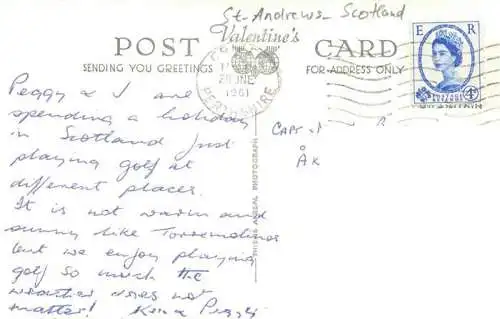 St-Andrews-Scotland
POST Valentine's CARD
SENDING YOU GREETINGS
FOR ADDRESS ONLY
E R
JNE
1961
PERTHSHIRE
Peggy & I are
spending a holiday
in Scotland just
playing golf at
different places.
It is not warm and
sunny like Torremolinos
but we enjoy playing
golf so much the
weather does not
matter! Ken & Peggy
THIS IS AERIAL PHOTOGRAPH
CAPT
ÅK